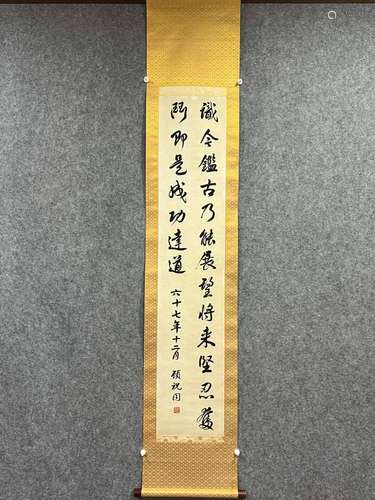 識今鑑古乃能展望將来堅忍奮
鬥即是成功達道
六十七年十二月 顧祝同